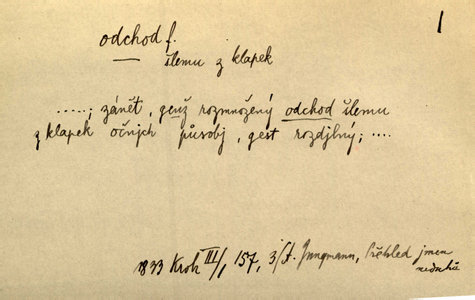 1
odchod f.
šlemu z klapek
.....; zánět, genž rozmnožený odchod šlemu
z klapek očnjch působj, gest rozdjlný; ....
1833 Krok III/1, 157, 3/A. Jungmann, Přehled jmen
neduhů